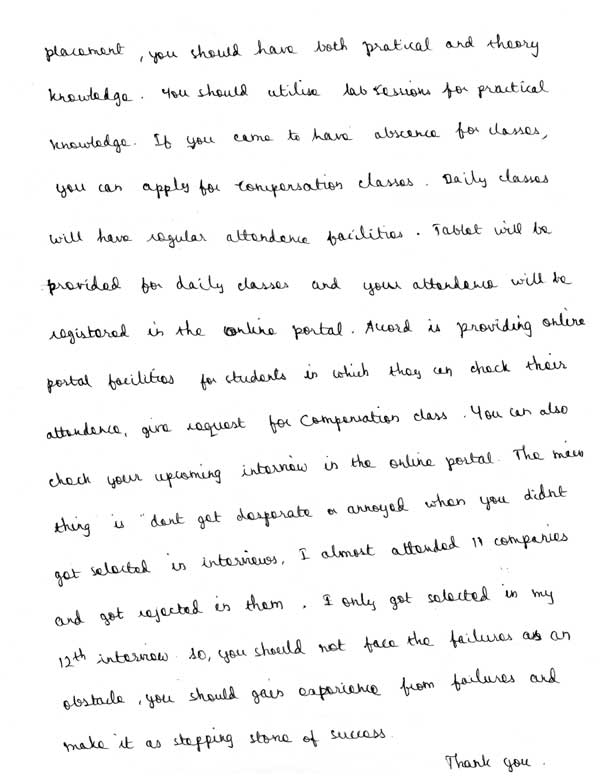 placement, you should have both pratical and theory
knowledge. You should utilise lab sessions for practical
knowledge. If you came to have abscence for classes,
you can apply for compensation classes. Daily classes
will have regular attendence facilities. Tablet will be
provided for daily classes and your attendence will be
registered in the online portal. Accord is providing online
portal facilities for students in which they can check their
attendence, give request for compensation class. You can also
check your upcoming interview in the online portal. The main
thing is "dont get desparate or annoyed when you didnt
get selected in interviews, I almost attended 11 companies
and got rejected in them. I only got selected in my
12th interview. So, you should not face the failures as an
obstacle, you should gain experience from failures and
make it as stepping stone of success.
Thank you.